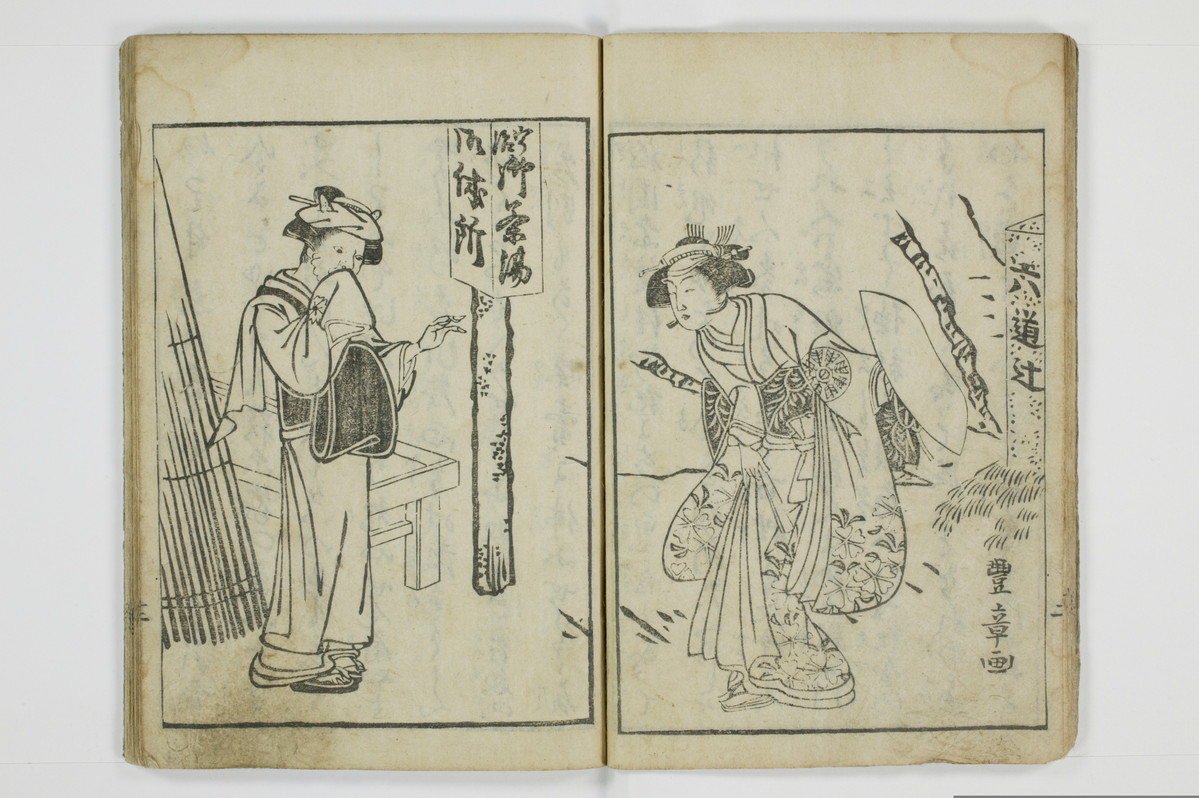 六道辻
豊章画
御茶湯
御休所